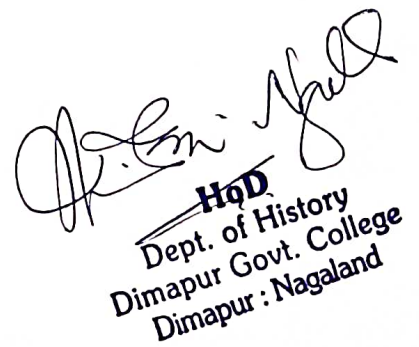 HOD
Dept. of History
Dimapur Govt. College
Dimapur : Nagaland